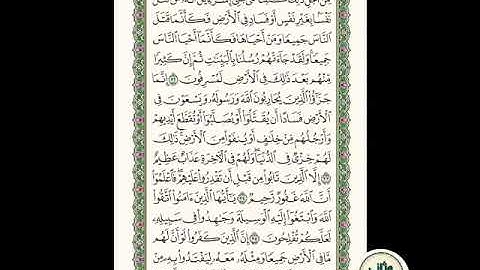 نَفْسًا بِغَيْرِ نَفْسٍ أَوْ فَسَادٍ فِى ٱلْأَرْضِ فَكَأَنَّمَا قَتَلَ
ٱلنَّاسَ جَمِيعًا وَمَنْ أَحْيَاهَا فَكَأَنَّمَآ أَحْيَا ٱلنَّاسَ
جَمِيعًا ۚ وَلَقَدْ جَآءَتْهُمْ رُسُلُنَا بِٱلْبَيِّنَٰتِ ثُمَّ إِنَّ كَثِيرًا
مِّنْهُم بَعْدَ ذَٰلِكَ فِى ٱلْأَرْضِ لَمُسْرِفُونَ ٣٢ إِنَّمَا
جَزَٰٓؤُا۟ ٱلَّذِينَ يُحَارِبُونَ ٱللَّهَ وَرَسُولَهُۥ وَيَسْعَوْنَ فِى
ٱلْأَرْضِ فَسَادًا أَن يُقَتَّلُوٓا۟ أَوْ يُصَلَّبُوٓا۟ أَوْ تُقَطَّعَ أَيْدِيهِمْ
وَأَرْجُلُهُم مِّنْ خِلَٰفٍ أَوْ يُنفَوْا۟ مِنَ ٱلْأَرْضِ ۚ ذَٰلِكَ
لَهُمْ خِزْىٌ فِى ٱلدُّنْيَا ۖ وَلَهُمْ فِى ٱلْءَاخِرَةِ عَذَابٌ عَظِيمٌ
٣٣ إِلَّا ٱلَّذِينَ تَابُوا۟ مِن قَبْلِ أَن تَقْدِرُوا۟ عَلَيْهِمْ ۖ فَٱعْلَمُوٓا۟
أَنَّ ٱللَّهَ غَفُورٌ رَّحِيمٌ ٣٤ يَٰٓأَيُّهَا ٱلَّذِينَ ءَامَنُوا۟ ٱتَّقُوا۟
ٱللَّهَ وَٱبْتَغُوٓا۟ إِلَيْهِ ٱلْوَسِيلَةَ وَجَٰهِدُوا۟ فِى سَبِيلِهِۦ
لَعَلَّكُمْ تُفْلِحُونَ ٣٥ إِنَّ ٱلَّذِينَ كَفَرُوا۟ لَوْ أَنَّ لَهُم
مَّا فِى ٱلْأَرْضِ جَمِيعًا وَمِثْلَهُۥ مَعَهُۥ لِيَفْتَدُوا۟ بِهِۦ مِنْ